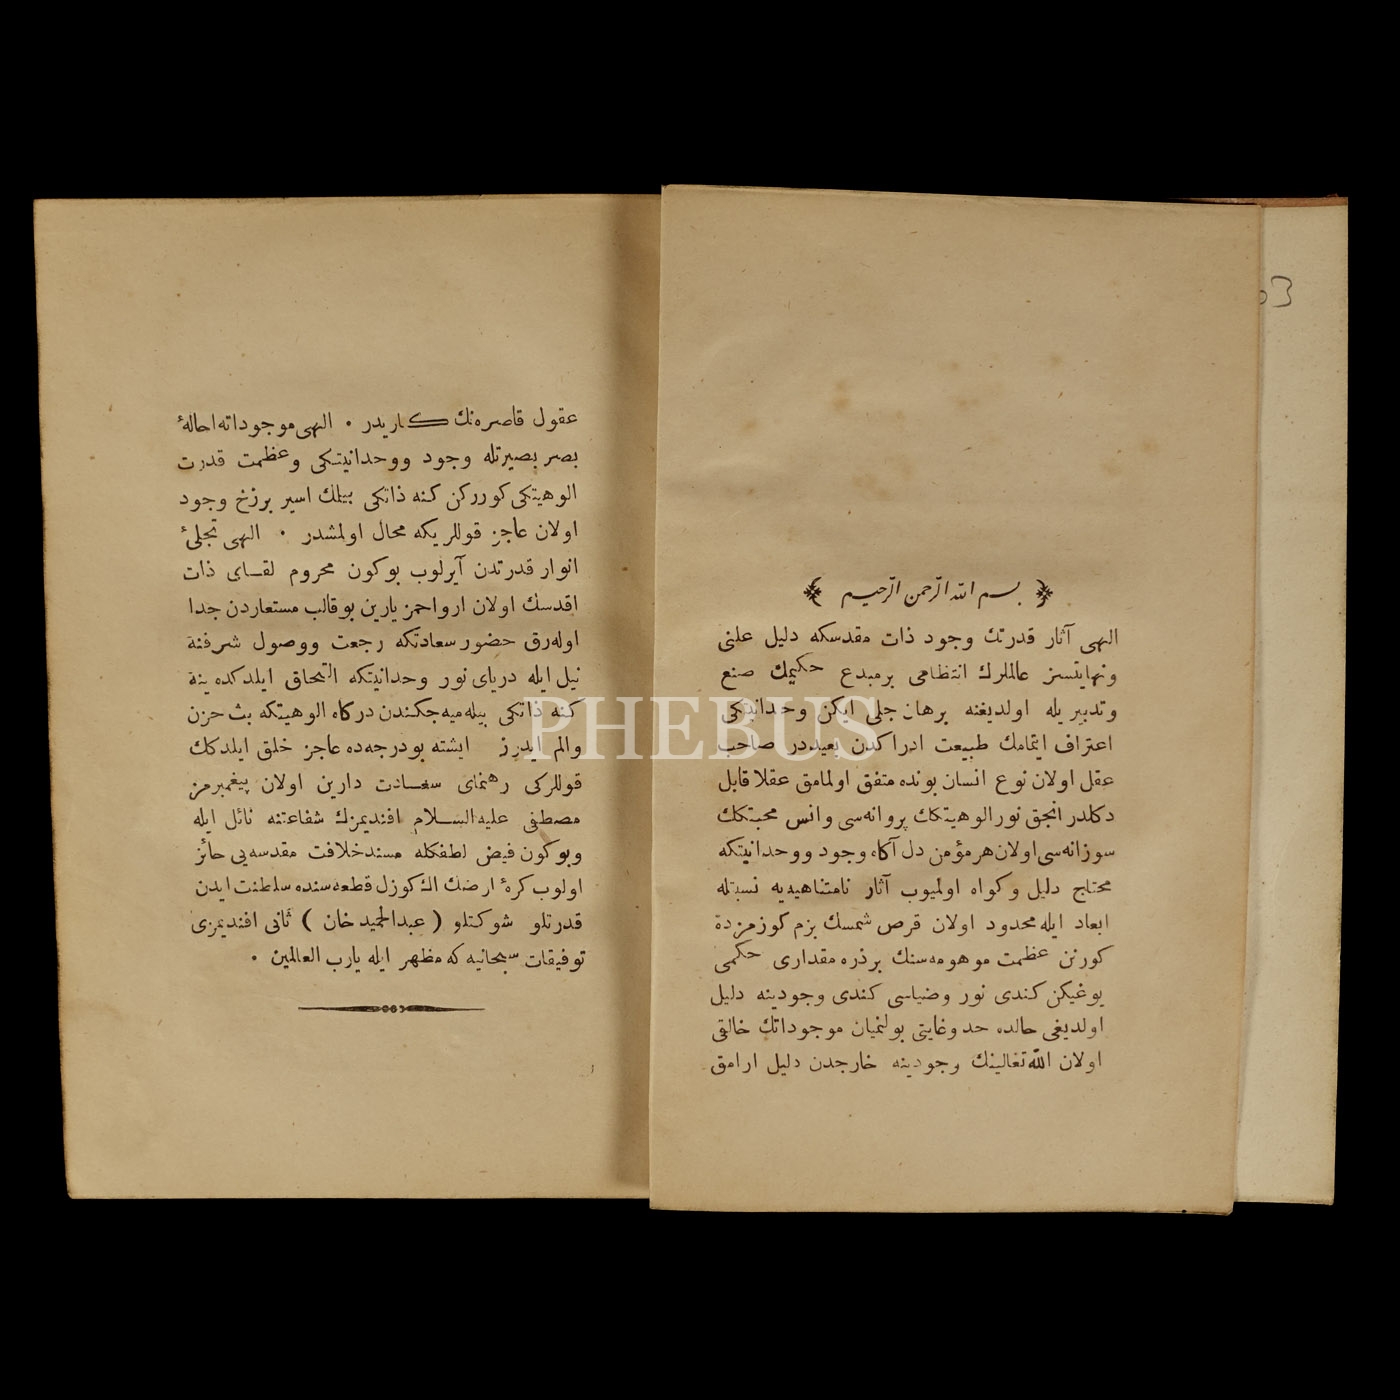 ﴿ بسم الله الرحمن الرحيم ﴾
الهى آثار قدرتك وجود ذات مقدسكه دليل علنى
ونهايتسز عالملرك انتظامى برمبدع حكيمك صنع
وتدبيريله اولديغنه برهان جلى ايكن وحدانيتكى
اعتراف ايتمامك طبيعت ادراكدن بعيددر صاحب
عقل اولان نوع انسان بونده متفق اولمامق عقلا قابل
دكلدر انجق نور الوهيتكك پروانه‌سى وانس محبتكك
سوزانه‌سى اولان هرمؤمن دل آكاه وجود ووحدانيتكه
محتاج دليل وكواه اولميوب آثار نامتناهيه‌يه نسبتله
ابعاد ايله محدود اولان قرص شمسك بزم كوزمزده
كورنن عظمت موهومه‌سنك برذره مقدارى حكمى
يوغيكن كندى نور وضياسى كندى وجودينه دليل
اولديغى حالده حد وغايتى بولنميان موجوداتك خالقى
اولان الله تعالينك وجودينه خارجدن دليل ارامق
عقول قاصره‌نك كاريدر ٠ الهى موجوداته احاله‌ٔ
بصر بصيرتله وجود ووحدانيتكى وعظمت قدرت
الوهيتكى كورركن كنه ذاتكى بيلك اسير برزخ وجود
اولان عاجز قوللريكه محال اولمشدر ٠ الهى تجلىٔ
انوار قدرتدن آيرلوب بوكون محروم لقاى ذات
اقدسك اولان ارواحمز يارين بوقالب مستعاردن جدا
اوله‌رق حضور سعادتكه رجعت ووصول شرفنه
نيل ايله درياى نور وحدانيتكه التحاق ايلدكده ينه
كنه ذاتكى بيله‌ميه‌جكندن دركاه الوهيتكه بث حزن
والم ايدرز ايشته بودرجه‌ده عاجز خلق ايلدكك
قوللركى رهنماى سعادت دارين اولان پيغمبرمز
مصطفى عليه السلام افنديمزك شفاعتنه نائل ايله
وبوكون فيض لطفكله مسند خلافت مقدسه‌يى حائز
اولوب كرهٔ ارضك اك كوزل قطعه‌سنده سلطنت ايدن
قدرتلو شوكتلو ( عبدالحميد خان ) ثانى افنديمزى
توفيقات سبحانيه‌كه مظهر ايله يارب العالمين ٠
PHEBUS